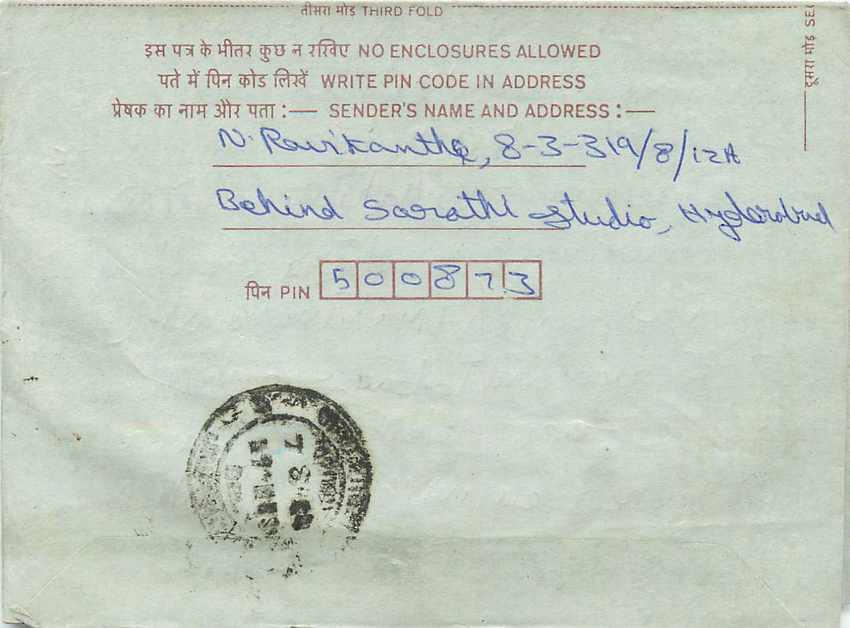 तीसरा मोड़ THIRD FOLD
इस पत्र के भीतर कुछ न रखिए NO ENCLOSURES ALLOWED
पते में पिन कोड लिखें WRITE PIN CODE IN ADDRESS
प्रेषक का नाम और पता :— SENDER'S NAME AND ADDRESS :—
N. Ravikanth, 8-3-319/8/12A
Behind Sarathi Studio, Hyderabad
पिन PIN 500873
दूसरा मोड़ SEC